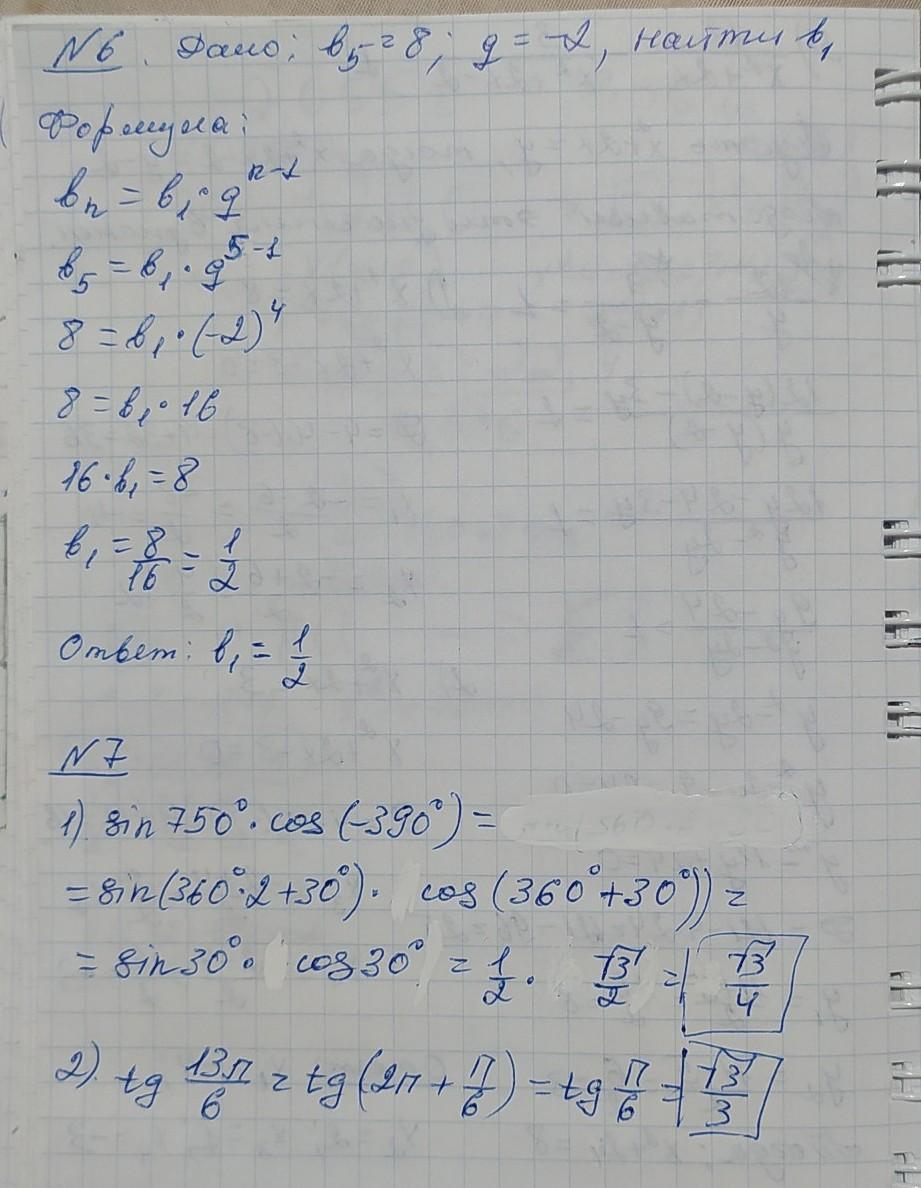 N6. Дано: b₅ = 8; q = -2, найти b₁
Формула:
bₙ = b₁ · qⁿ⁻¹
b₅ = b₁ · q⁵⁻¹
8 = b₁ · (-2)⁴
8 = b₁ · 16
16 · b₁ = 8
b₁ = 8/16 = 1/2
Ответ: b₁ = 1/2
N7
1) sin 750° · cos (-390°) =
= sin(360° · 2 + 30°) · cos (360° + 30°)) =
= sin 30° · cos 30° = 1/2 · √3/2 = √3/4
2) tg 13π/6 = tg (2π + π/6) = tg π/6 = √3/3